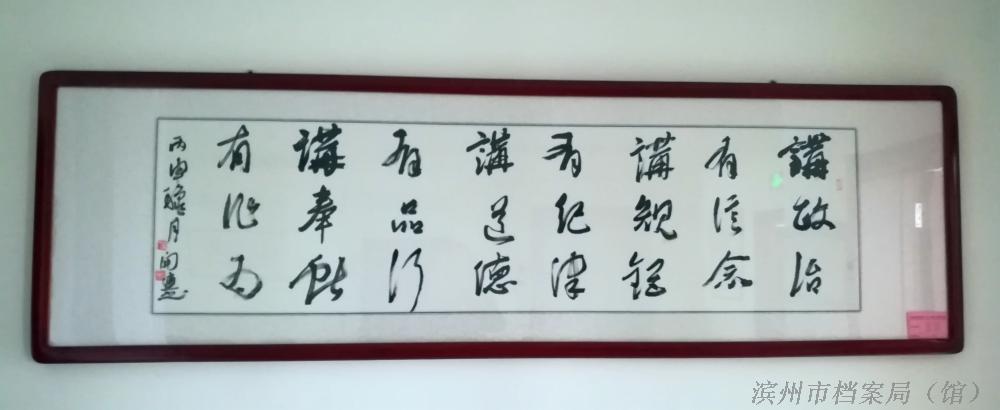 講政治
有信念
講規矩
有紀律
講道德
有品行
講奉献
有作为
丙申臘月
滨州市档案局（馆）